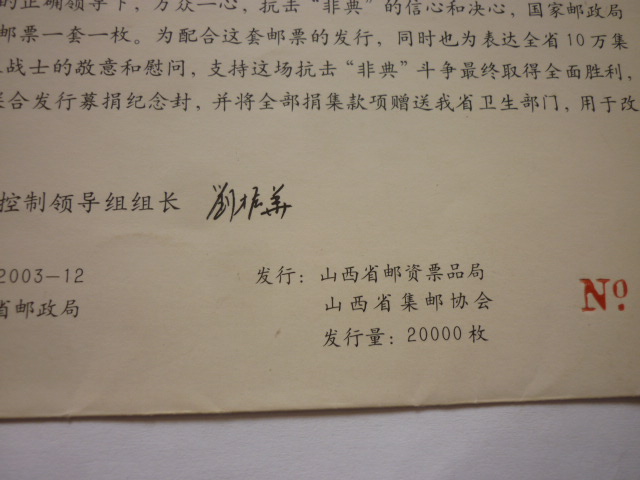 的正确领导下，万众一心，抗击“非典”的信心和决心，国家邮政局
邮票一套一枚。为配合这套邮票的发行，同时也为表达全省10万集
战士的敬意和慰问，支持这场抗击“非典”斗争最终取得全面胜利，
合发行募捐纪念封，并将全部捐集款项赠送我省卫生部门，用于改
控制领导组组长 劉振華
2003-12
省邮政局
发行：山西省邮资票品局
山西省集邮协会
发行量：20000枚
Nº